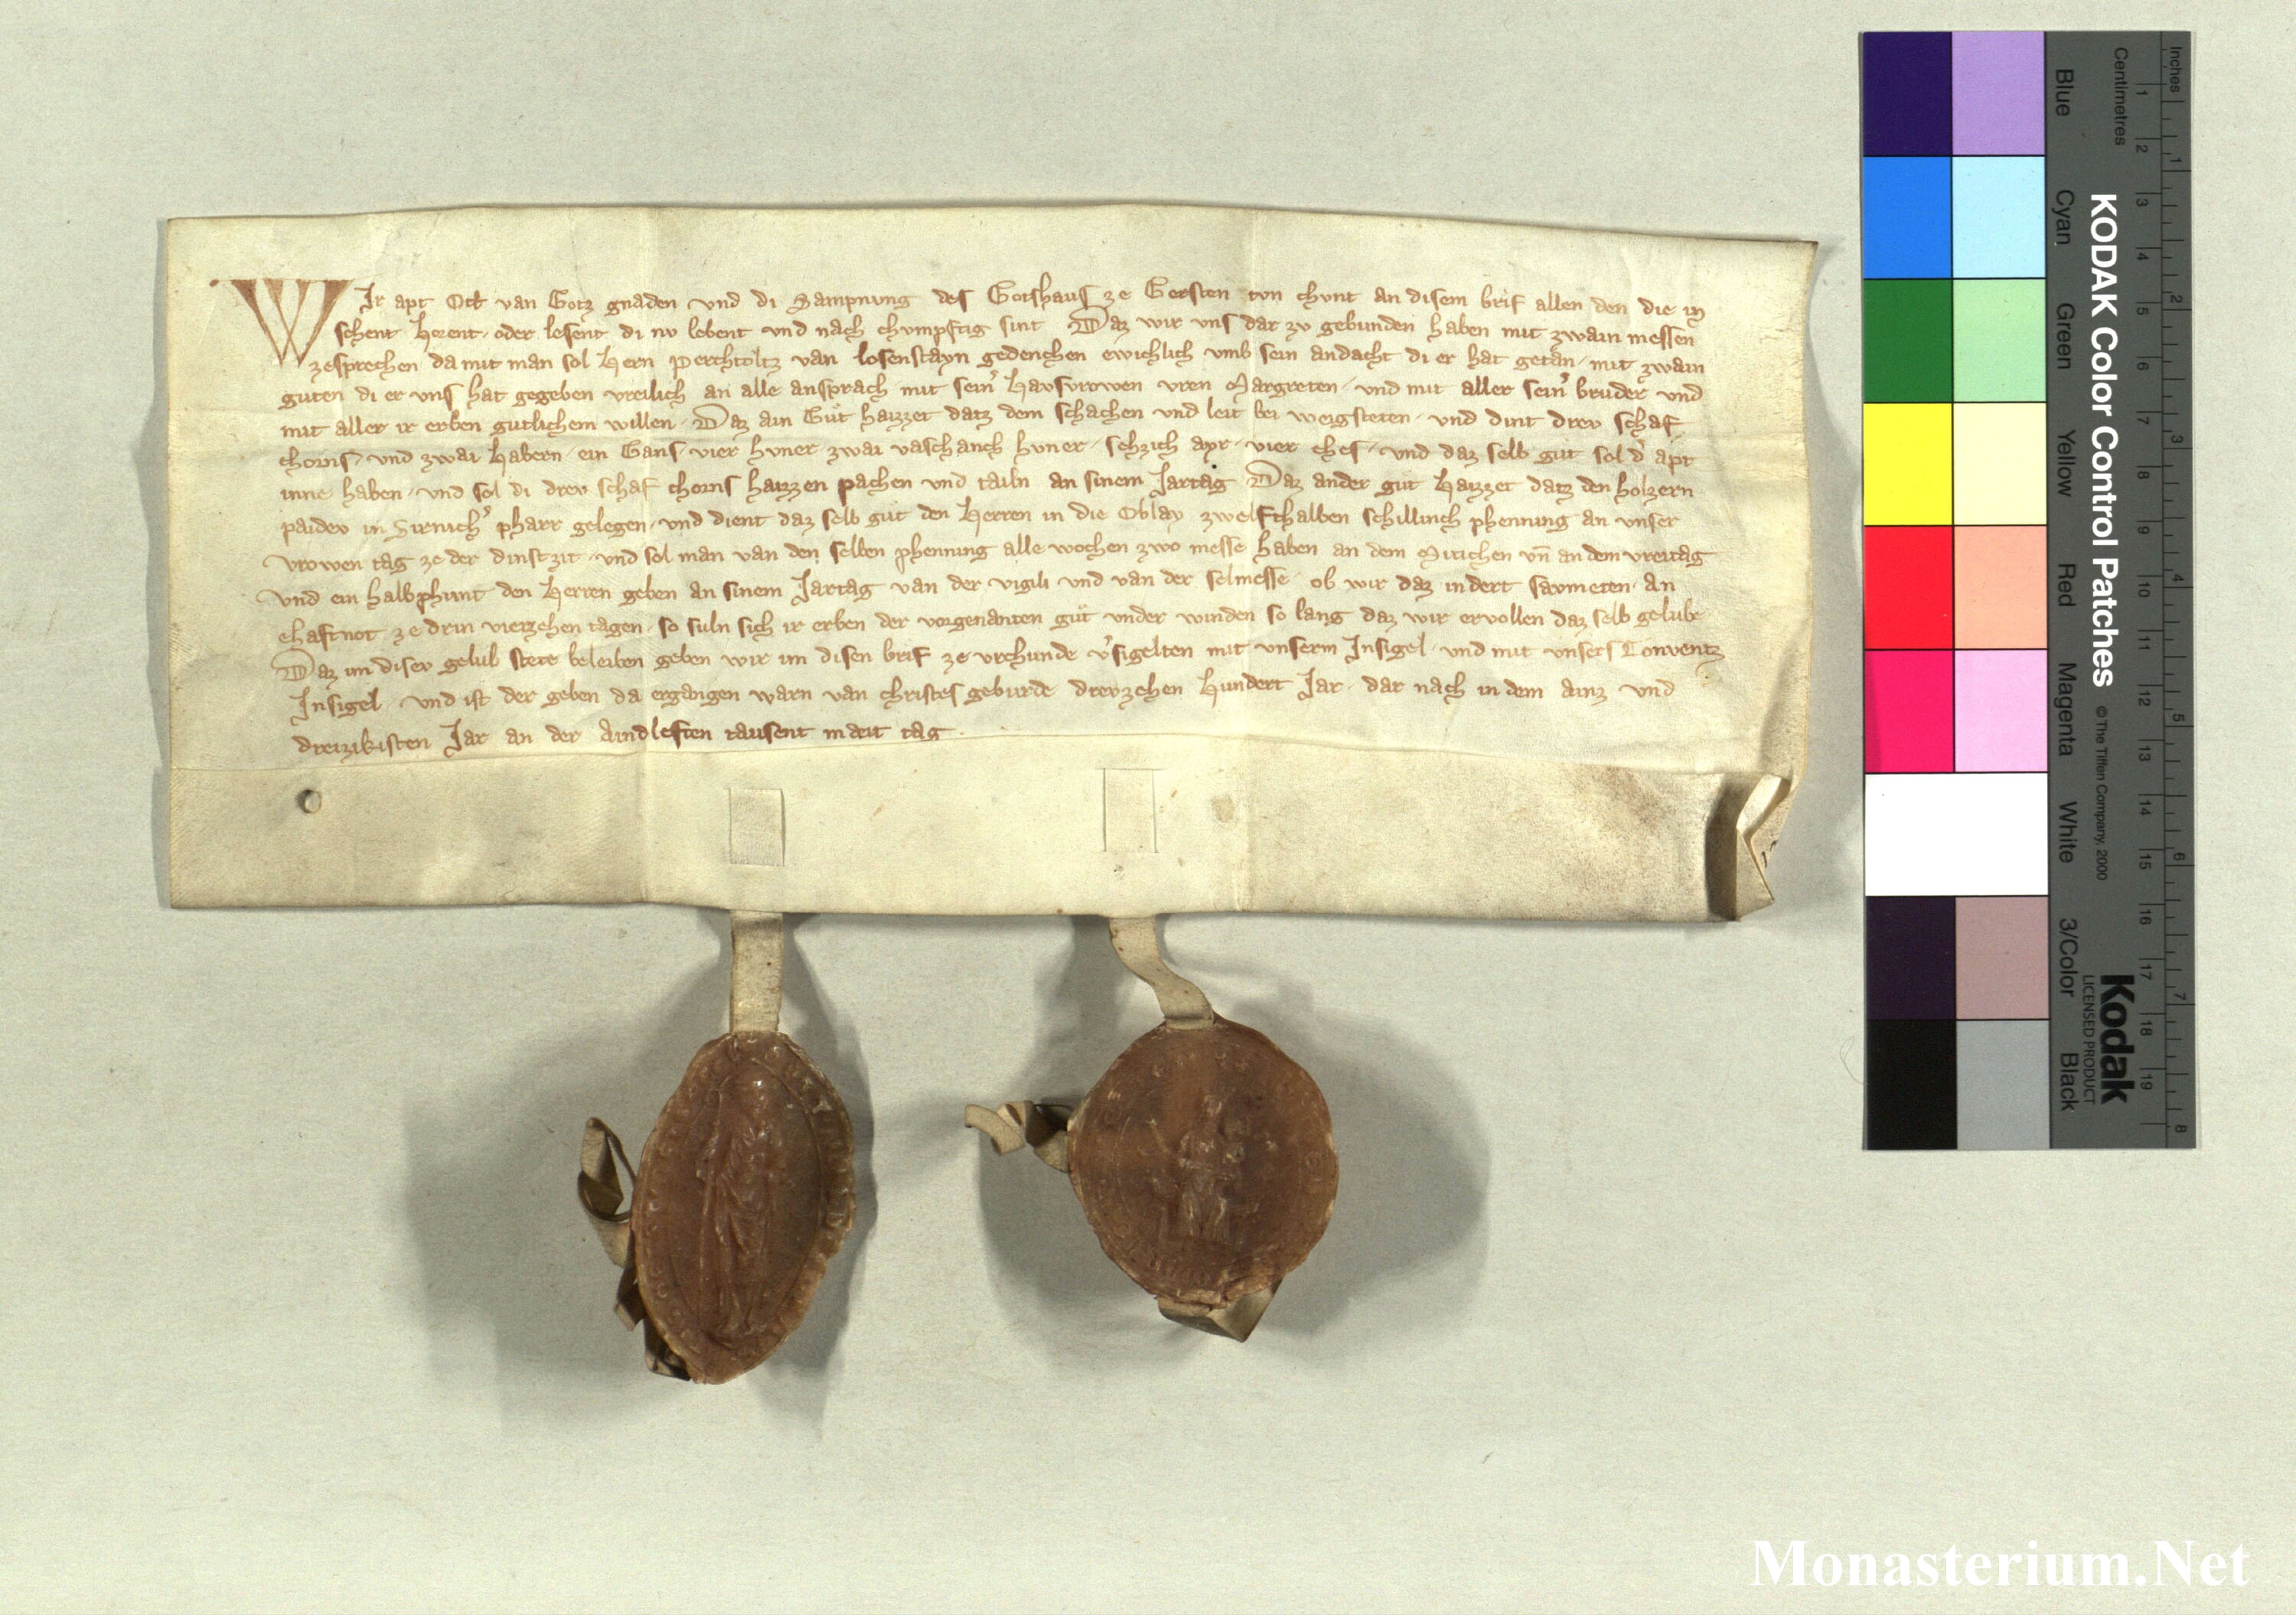 WIr apt Ott van Gotz gnaden vnd di Sampnung des Gotshaus ze Gersten tvn chvnt an disem brif allen den die in
sehent horent oder lesent di nv lebent vnd nach chvmpftig sint Daz wir vns dar zv gebunden haben mit zwain messen
zesprechen da mit man sol Hern Perchtoltz van Losenstayn gedenchen ewichlich vmb sein andacht di er hat getan mit zwain
guten di er vns hat gegeben vreilich an alle ansprach mit sein' Havsvrowen vren Margreten vnd mit aller sein' bruder vnd
mit aller ir erben gutlichem willen Daz ain Gut haizzet datz dem schachen vnd leit bei weigsteten vnd dint drev schaf
chorns vnd zwai Habern ein Gans vier hvner zwai vaschanch hvner sehzich ayr vier ches vnd daz selb gut sol d' apt
inne haben vnd sol di drev schaf chorns haizzen pachen vnd tailn an sinem Jartag Daz ander gut Haizzet datz den holzern
paidev in Sirnich' pharr gelegen vnd dient daz selb gut den Herren in die Oblay zwelfthalben schillinch phenning an vnser
vrowen tag ze der dinst zit vnd sol man van den selben phenning alle wochen zwo messe haben an dem Mitichen vn̄ an dem vreitag
vnd ein halb phunt den Herren geben an sinem Jartag van der vigili vnd van der selmesse ob wir daz indert savmeten an
ehaft not ze drin vierzehen tagen so suln sich ir erben der vorgenanten gut vnder winden so lang daz wir ervollen daz selb gelube
Daz im disev gelub stete beleiben geben wir im disen brif ze vrchunde v'sigelten mit vnserm Insigel vnd mit vnsers Conventz
Insigel vnd ist der geben da ergangen warn van christes geburde drevzehen Hundert Jar dar nach in dem ainz vnd
dreizikisten Jar an der Aindleften tausent maeit tag
Inches
Centimetres
1 2 3 4 5 6 7 8
1 2 3 4 5 6 7 8 9 10 11 12 13 14 15 16 17 18 19
KODAK Color Control Patches
© The Tiffen Company, 2000
Kodak
LICENSED PRODUCT
Blue Cyan Green Yellow Red Magenta White 3/Color Black
Monasterium.Net